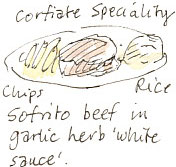 Corfiate Speciality
Chips
Rice
Sofrito beef in
garlic herb 'white
sauce'.